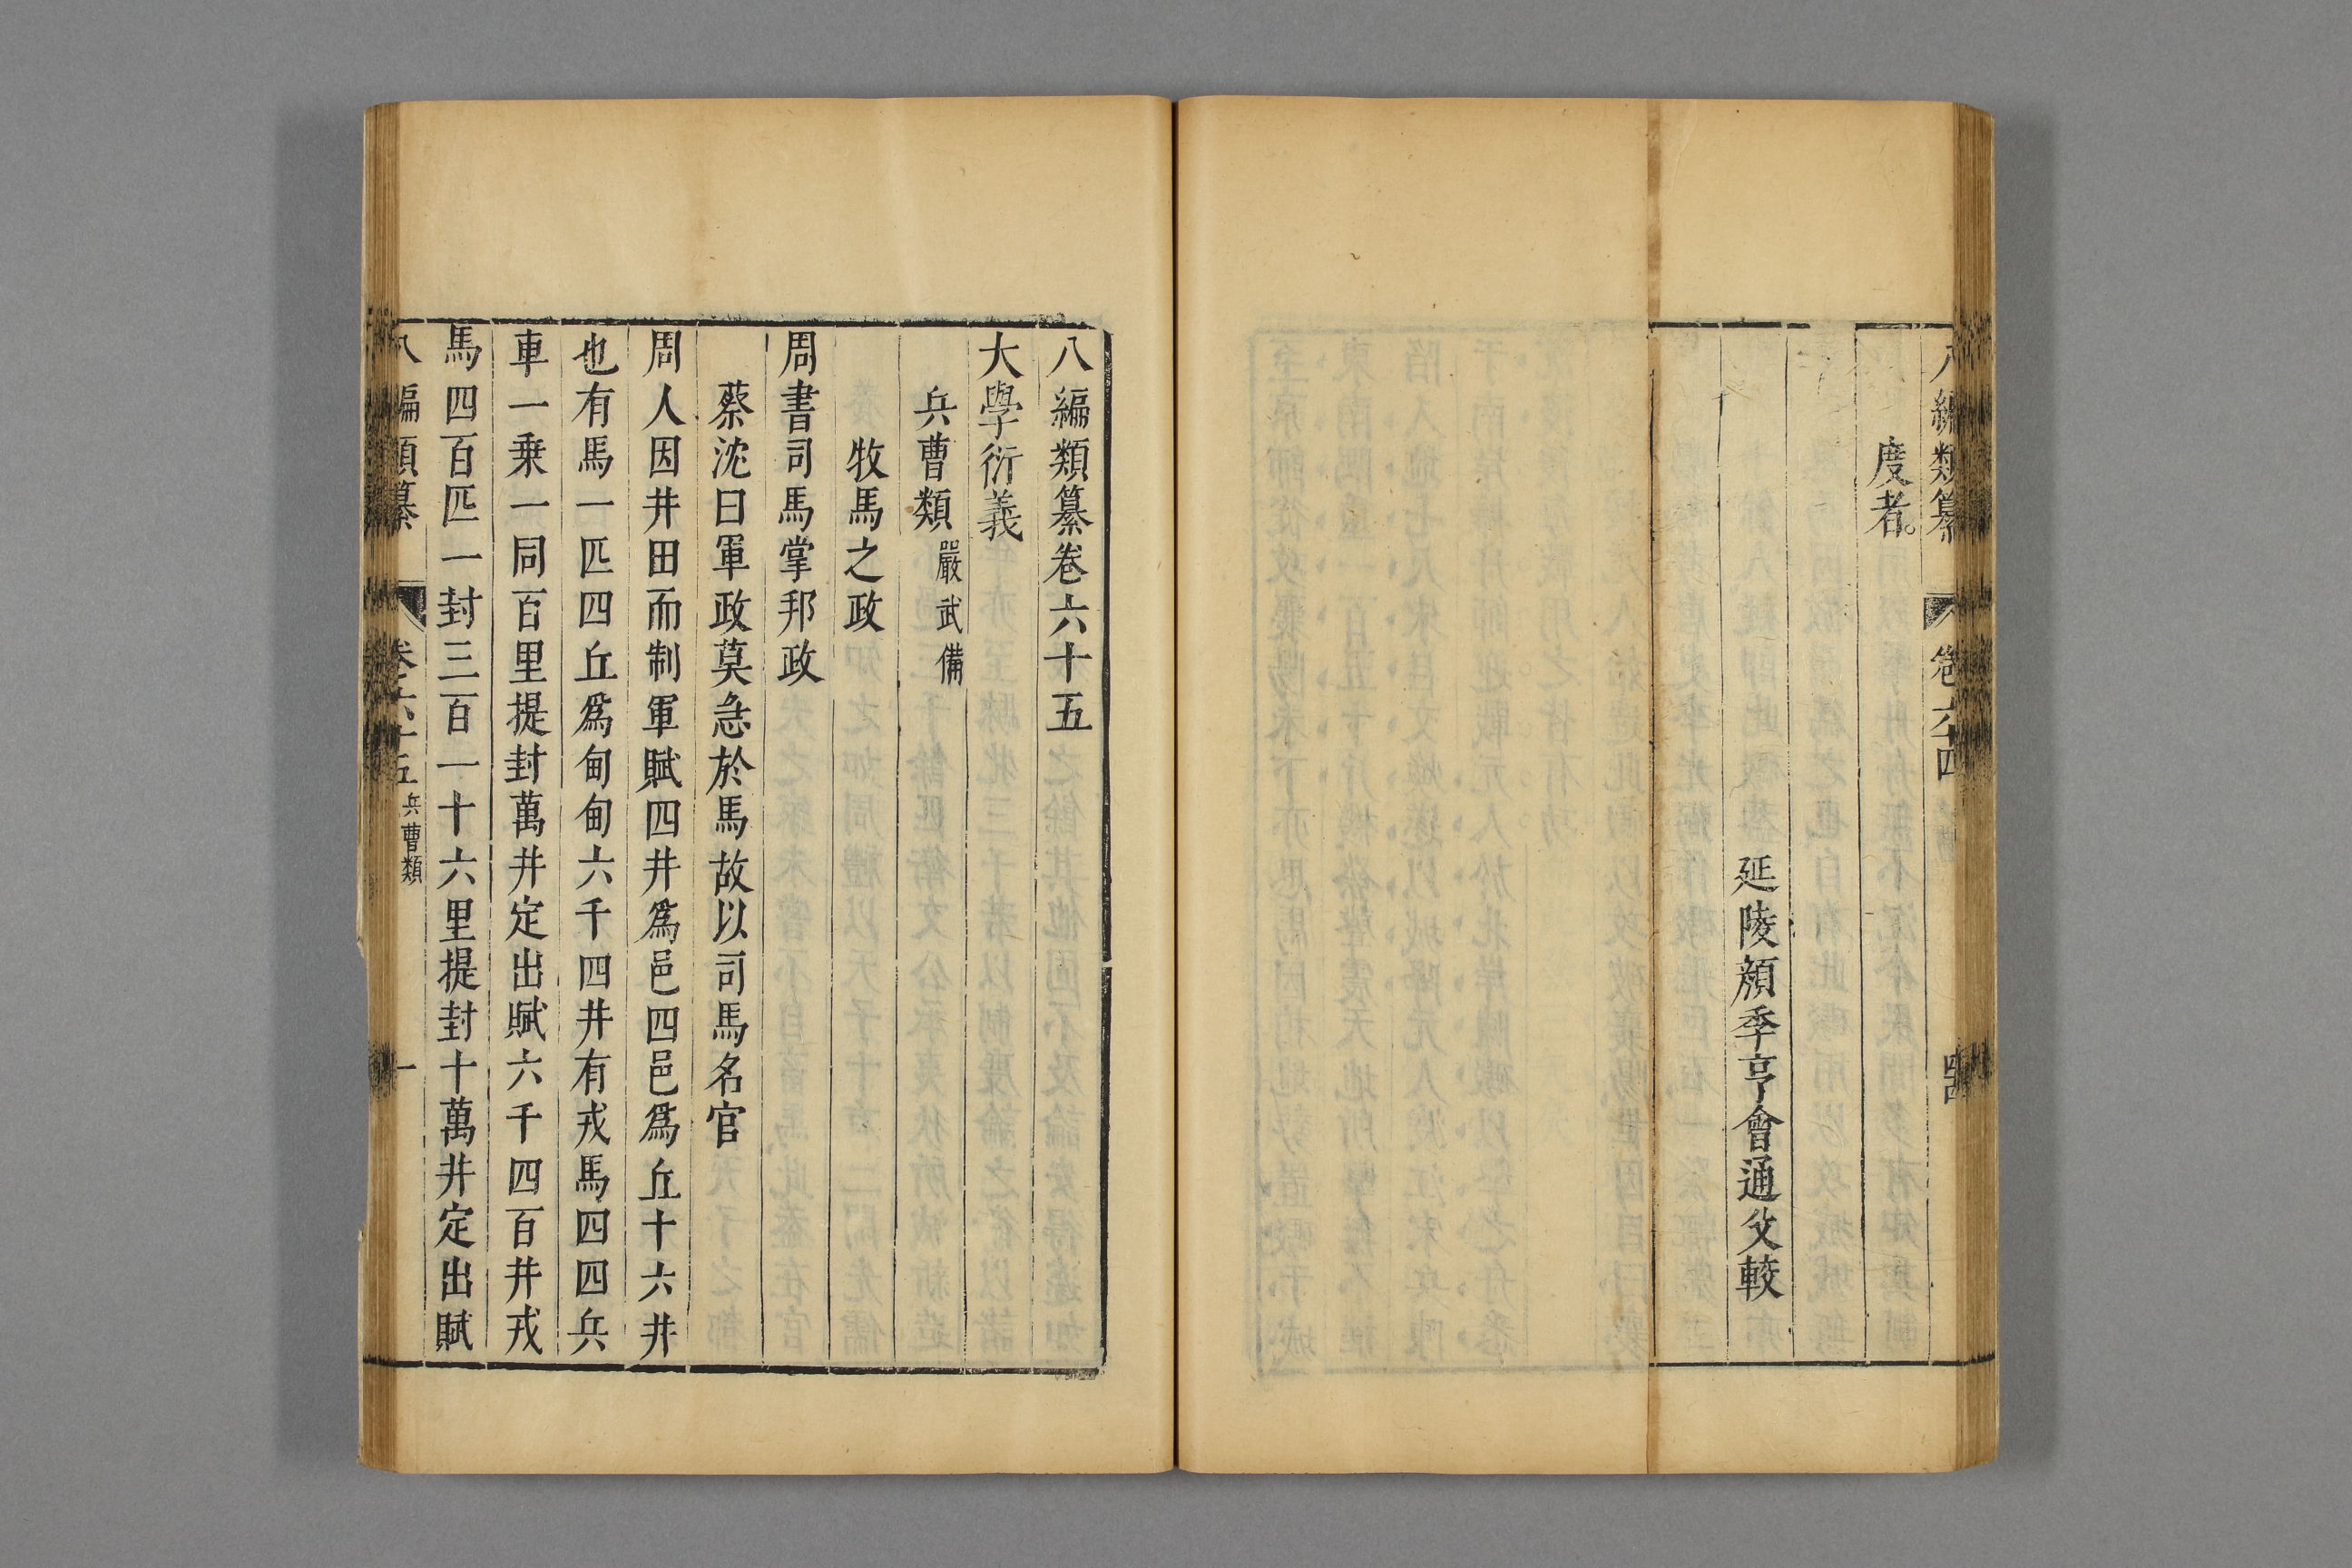 八編類纂 卷六十四
度者。
延陵顏季亨會通父較
八編類纂卷六十五
大學衍義
兵曹類 嚴武備
牧馬之政
周書司馬掌邦政
蔡沈曰軍政莫急於馬故以司馬名官
周人因井田而制軍賦四井爲邑四邑爲丘十六井
也有馬一匹四丘爲甸甸六千四井有戎馬四四兵
車一乗一同百里提封萬井定出賦六千四百井戎
馬四百匹一封三百一十六里提封十萬井定出賦
八編類纂 卷六十五 兵曹類 一